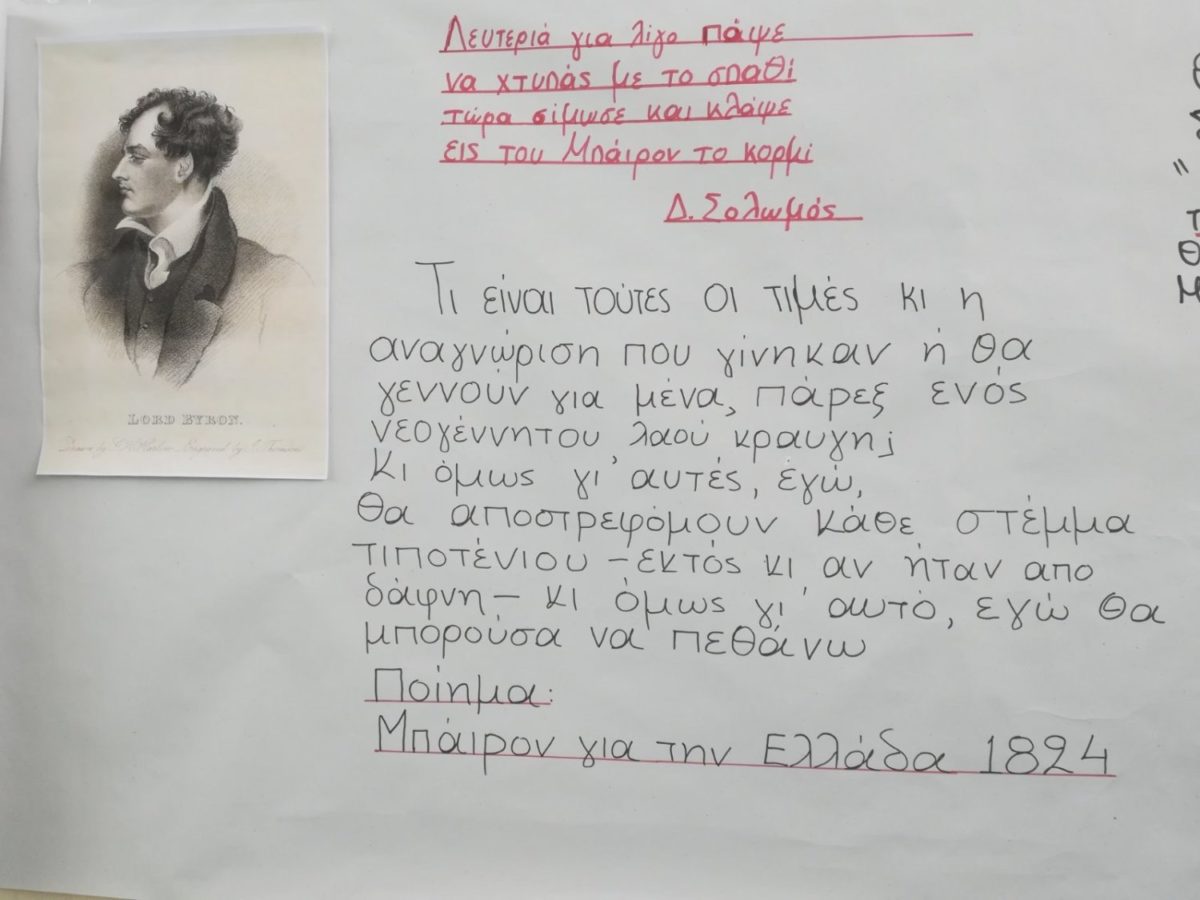 Λευτεριά για λίγο πάψε
να χτυπάς με το σπαθί
τώρα σίμωσε και κλάψε
εις του Μπάιρον το κορμί
Δ. Σολωμός
LORD BYRON.
Τι είναι τούτες οι τιμές κι η
αναγνώριση που γίνηκαν ή θα
γεννούν για μένα, πάρεξ ενός
νεογέννητου λαού κραυγη;
Κι όμως γι' αυτές, εγώ,
θα αποστρεφόμουν κάθε στέμμα
τιποτένιου - εκτός κι αν ήταν απο
δάφνη - κι όμως γι' αυτό, εγώ θα
μπορούσα να πεθάνω
Ποίημα:
Μπάιρον για την Ελλάδα 1824